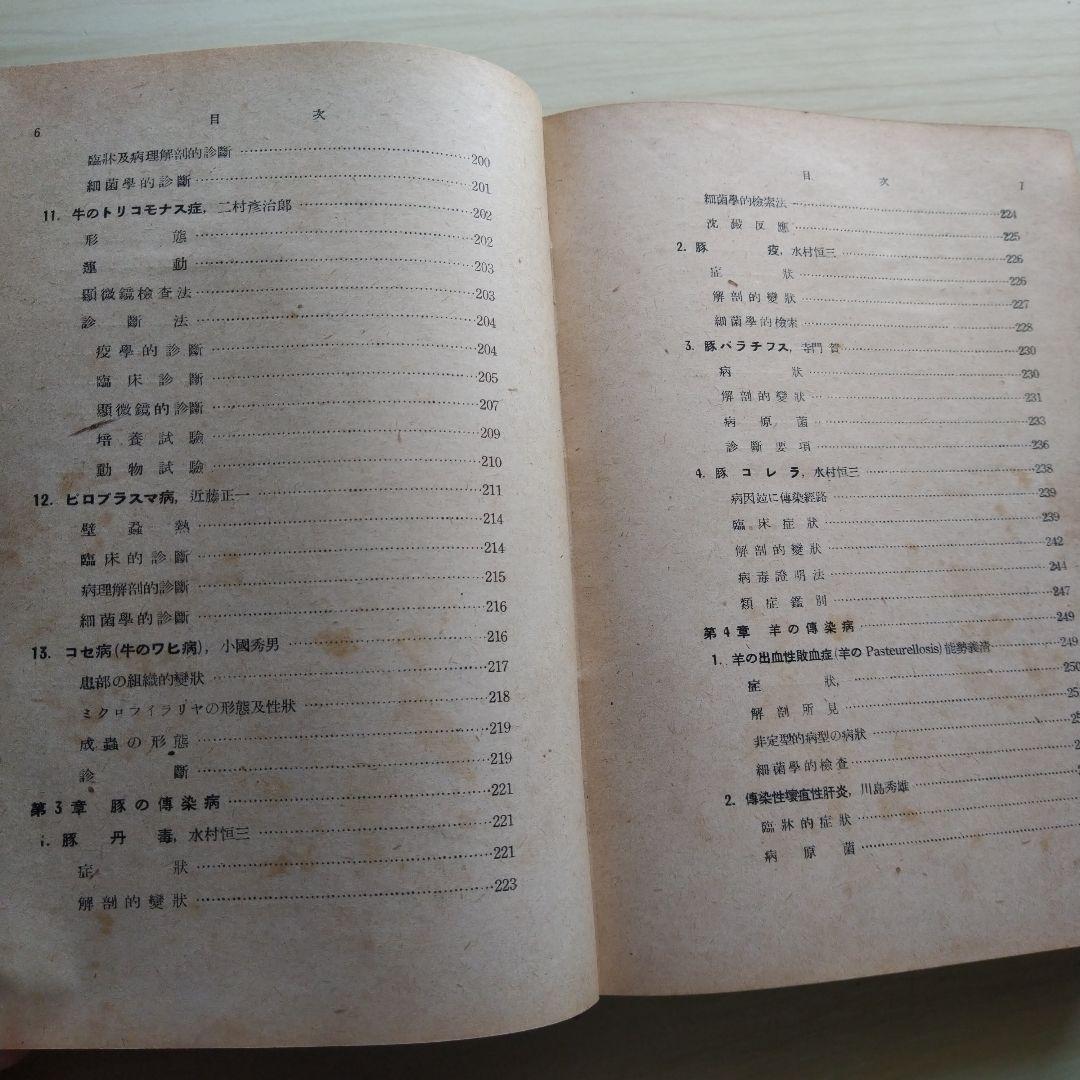 6 目次
臨牀及病理解剖的診斷 200
細菌學的診斷 201
11. 牛のトリコモナス症, 二村彥治郎 202
形態 202
運動 203
顯微鏡檢查法 203
診斷法 204
疫學的診斷 204
臨床診斷 205
顯微鏡的診斷 207
培養試驗 209
動物試驗 210
12. ピロプラスマ病, 近藤正一 211
壁蝨熱 214
臨床的診斷 214
病理解剖的診斷 215
細菌學的診斷 216
13. コセ病(牛のワヒ病), 小國秀男 216
患部の組織的變狀 217
ミクロフイラリヤの形態及性狀 218
成蟲の形態 219
診斷 219
第3章 豚の傳染病 221
1. 豚丹毒, 水村恒三 221
症狀 221
解剖的變狀 223
目次 7
細菌學的檢索法 224
沈澱反應 225
2. 豚疫, 水村恒三 226
症狀 226
解剖的變狀 227
細菌學的檢索 228
3. 豚パラチフス, 寺門 230
病狀 230
解剖的變狀 231
病原菌 233
診斷要項 236
4. 豚コレラ, 水村恒三 238
病因竝に傳染經路 239
臨床症狀 239
解剖的變狀 242
病毒證明法 244
類症鑑別 247
第4章 羊の傳染病 249
1. 羊の出血性敗血症(羊の Pasteurellosis) 能勢義清 249
症狀, 250
解剖所見 25
非定型的病型の病狀 25
細菌學的檢查 2
2. 傳染性壞疽性肝炎, 川島秀雄
臨牀的症狀
病原菌